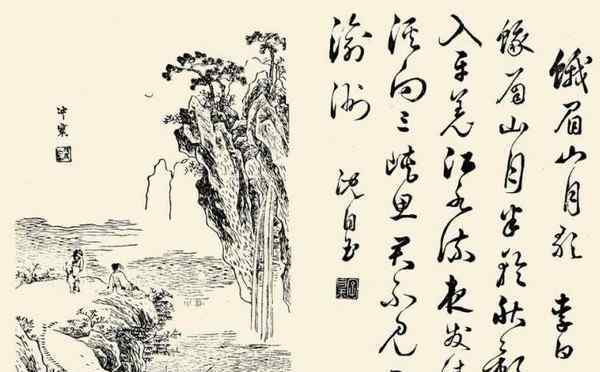 蛾眉山月歌 李白
蛾眉山月半輪秋影
入平羌江水流夜發
溪向三峽思君不見
渝州 沈